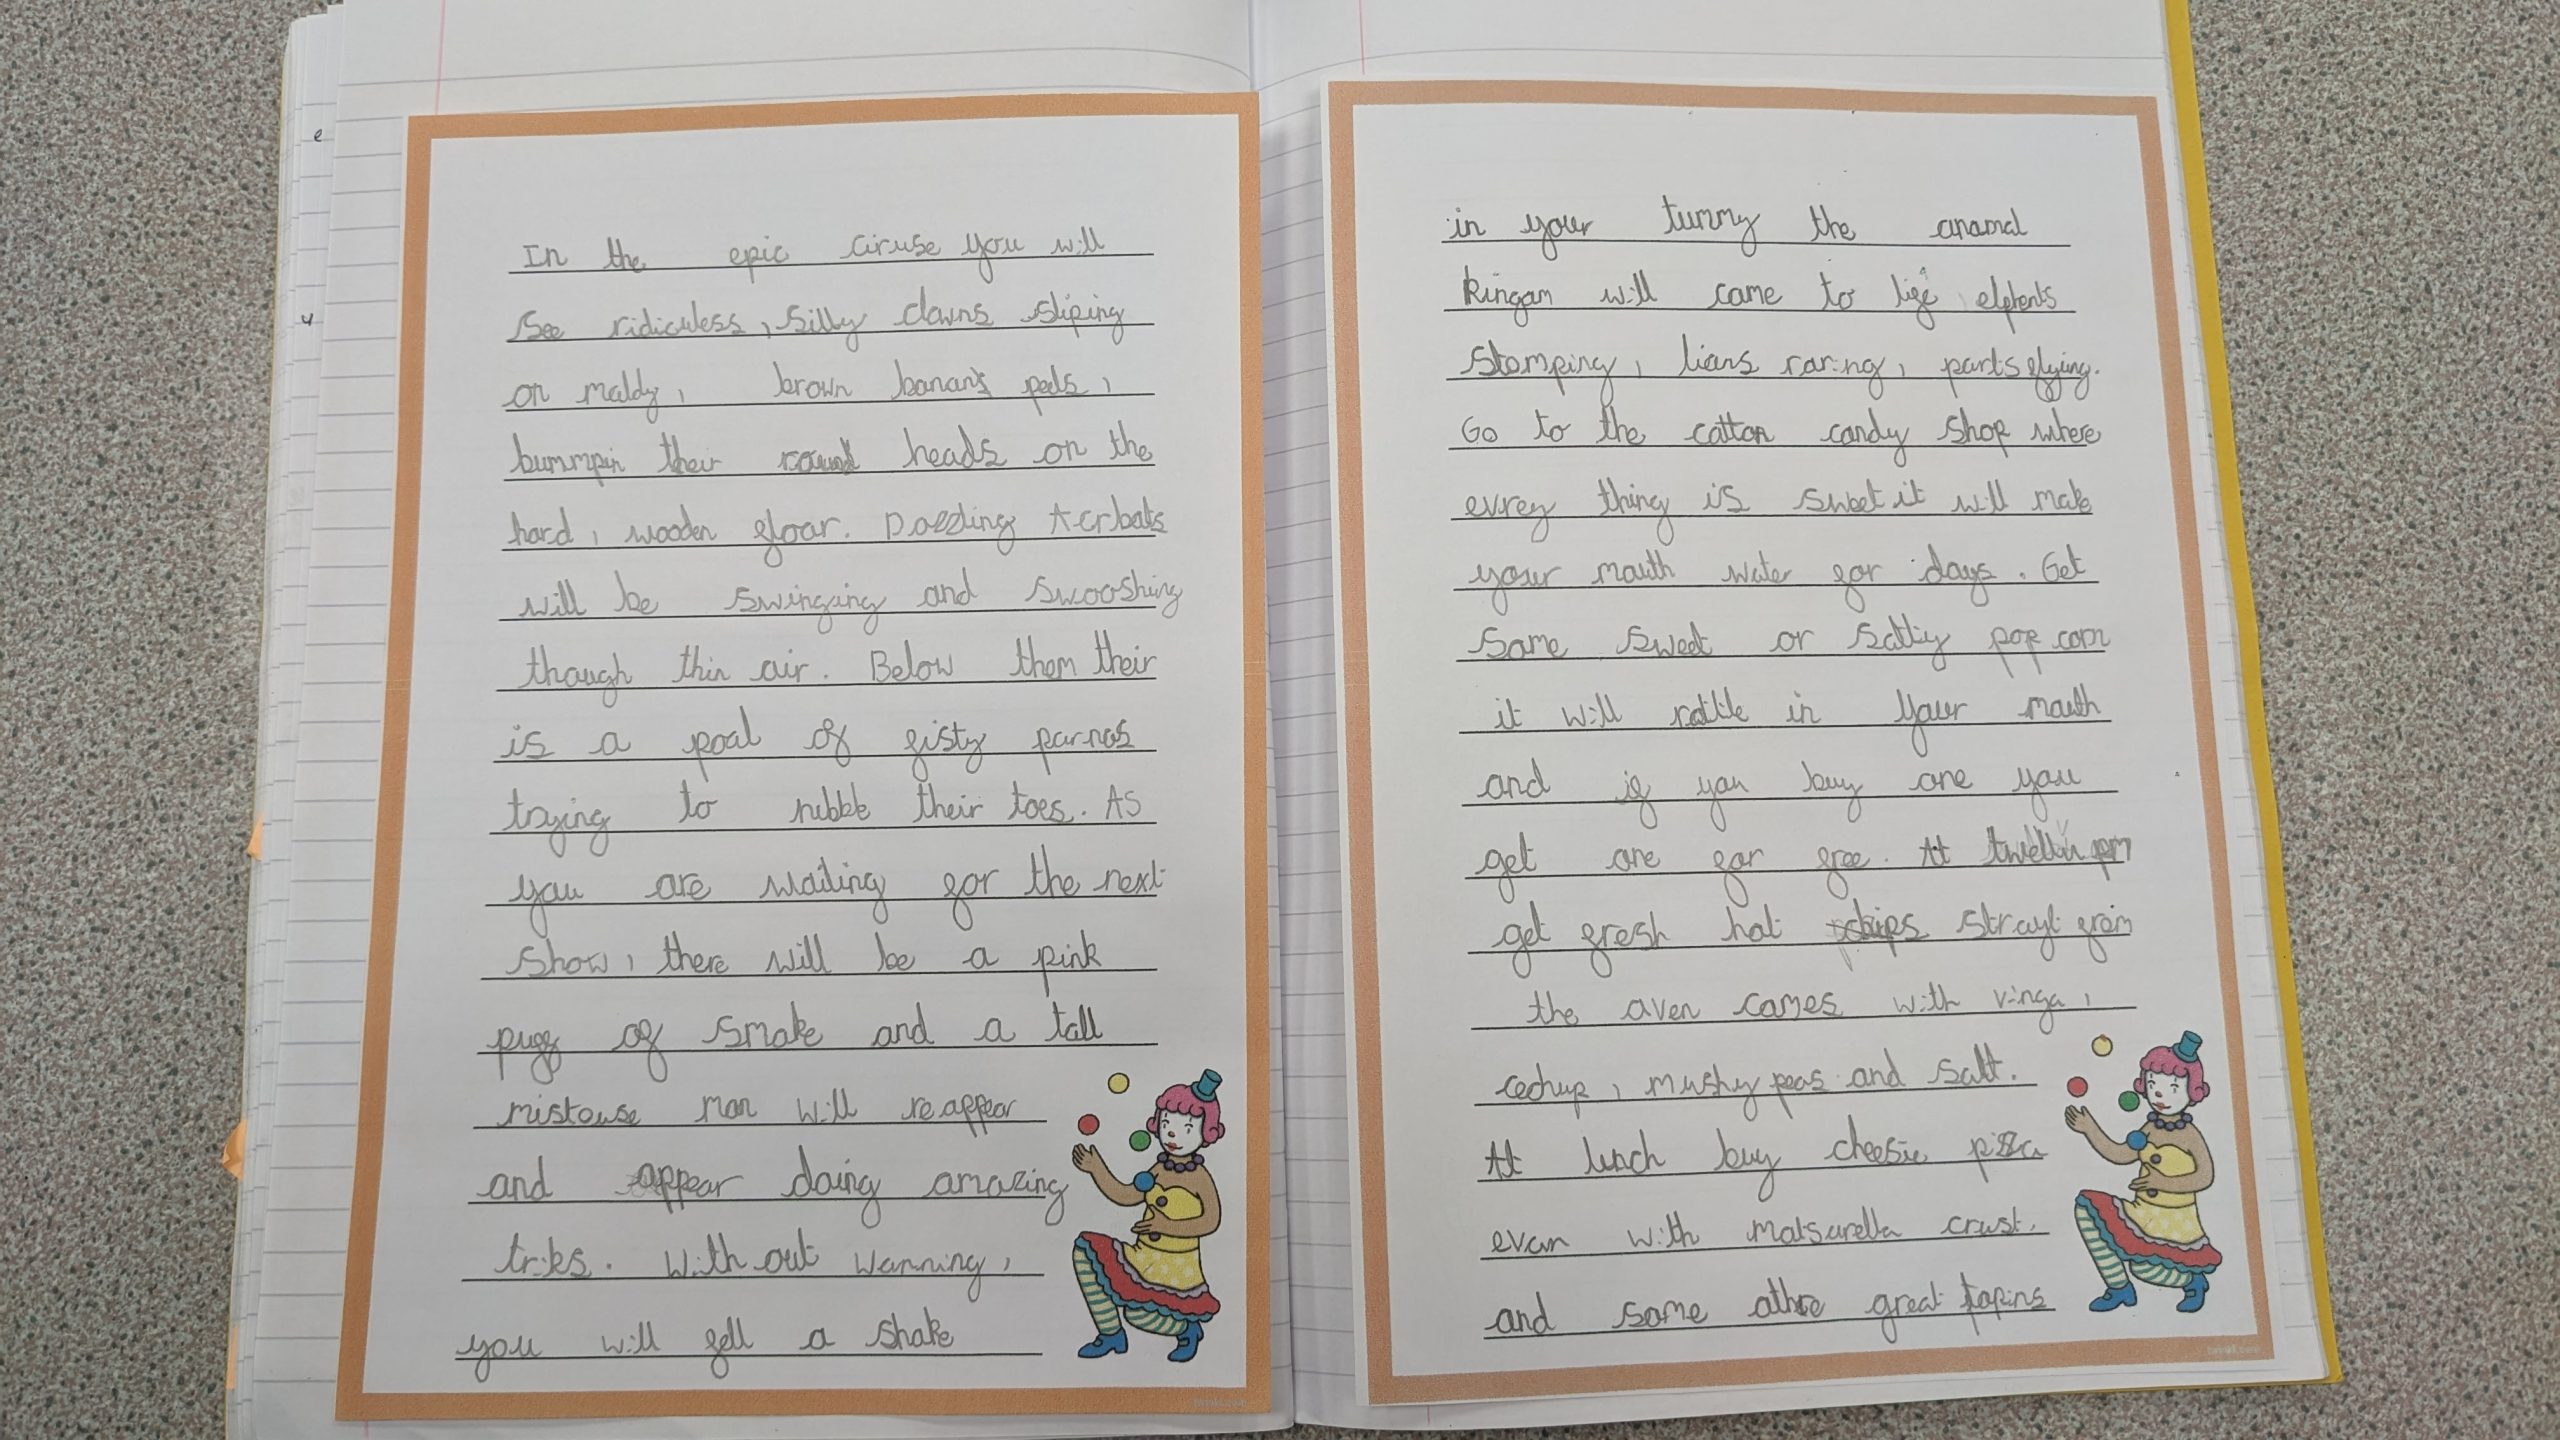 In the epic ciruse you will
See ridiculess, silly clowns sliping
on moldy, brown banan's peels,
bummpin their round heads on the
hard, wooden floor. Dazzling Acrbats
will be swinging and swooshing
though thin air. Below them their
is a pool of fisty parnas
trying to nibble their toes. As
you are waiting for the next
show, there will be a pink
puff of smoke and a tall
mistouse man will reappear
and appear doing amazing
triks. With out warnning,
you will fell a shake
twinkl.com
in your tummy the anamal
kingam will come to life elphents
stomping, lions roring, parits flying.
Go to the cotton candy shop where
evrey thing is sweet it will make
your mouth water for days. Get
some sweet or saltiy pop corn
it will rattle in your mouth
and if you buy one you
get one for free. At pm
get fresh hot chips strayt from
the oven comes with vinga,
cechup, mushy peas and salt.
At lunch buy cheesie pizza
evan with motsurella crust.
and some othre great topins
twinkl.com
e
y